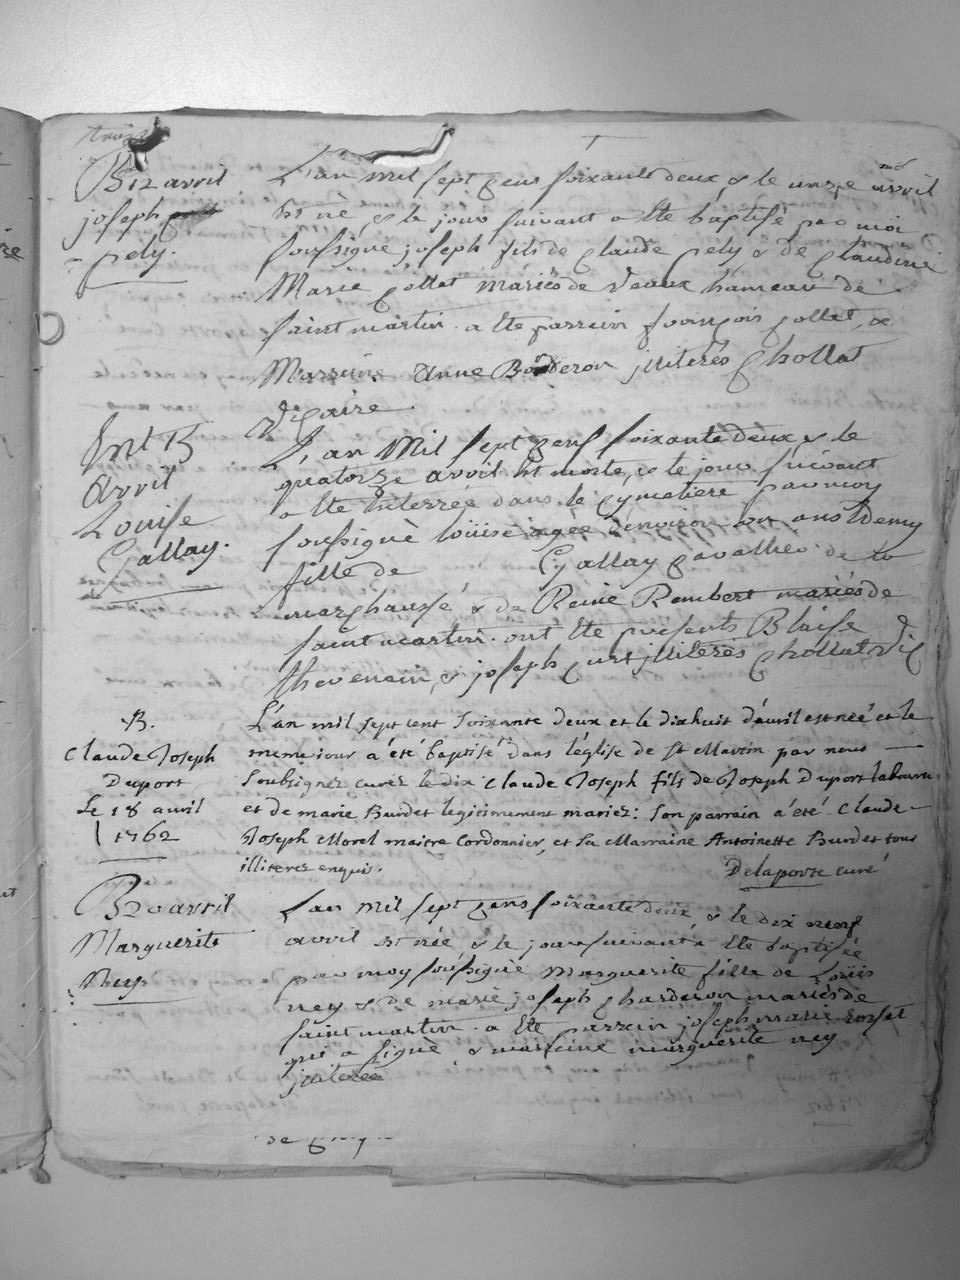 B 12 avril
joseph
pely.
L'an mil sept cens soixante deux & le unze avril
est né, & le jour suivant a ete baptisé par moi
soussigné joseph fils de claude pely & de claudine
Marie collet mariés de Veaux hameau de
saint martin. a ete parrain françois collet, &
Marraine Anne Bonderon illiterés Chollat
Vicaire
Ent B
Avril
Louise
Gallay.
L'an Mil sept cens soixante deux & le
quatorze avril est morte, & le jour suivant
a ete Enterrée dans le cymetiere par moy
soussigné loüise agée d'environ un ans Demy
fille de Gallay cavallier de la
marechaussé & de Reine Rambert mariés de
saint martin. ont ete presents Blaise
thevenain, & joseph curt illiterés Chollat Vic
B.
Claude Joseph
Duport
Le 18 avril
1762
L'an mil sept cent soixante deux et le dixhuit d'avril est née et le
meme jour a été baptisé dans l'église de St Martin par nous
soubsignez curez le dix claude Joseph fils de Joseph Duport laboureur
et de marie Burdet legitimement mariez: son parrain a été Claude
Joseph Morel maitre Cordonnier, et sa Marraine Antoinette Burdet tous
illiterez enquis.
Delaporte curé
B 20 avril
Marguerite
Ney
L'an Mil sept cens soixante deux & le dix neuf
avril est née & le jour suivant a ete baptisée
par moy soussigné Marguerite fille de Loüis
ney & de marie joseph Charderon mariés de
saint martin. a ete parrain joseph marie
qui a signé & marraine marguerite ney
illiterée